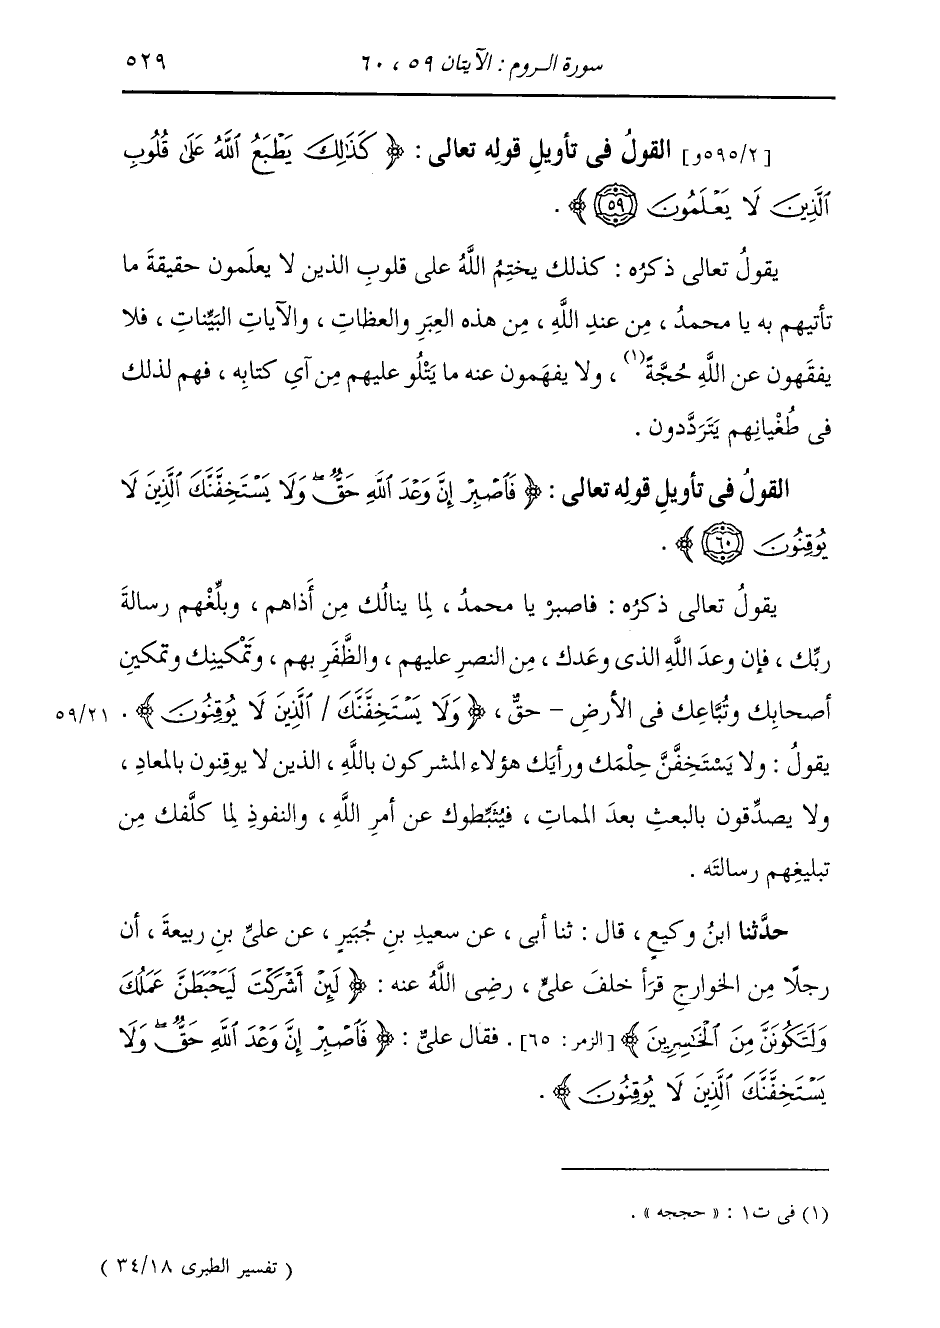 سورة الروم : الآيتان ٥٩ ، ٦٠ ٥٢٩
[٥٩٥/٢و] القولُ فى تأويلِ قولِه تعالى : ﴿ كَذَٰلِكَ يَطْبَعُ ٱللَّهُ عَلَىٰ قُلُوبِ
ٱلَّذِينَ لَا يَعْلَمُونَ ٥٩ ﴾ .
يقولُ تعالى ذكرُه : كذلك يختِمُ اللَّهُ على قلوبِ الذين لا يعلَمون حقيقةَ ما
تأتيهم به يا محمدُ ، مِن عندِ اللَّهِ ، مِن هذه العِبَرِ والعظاتِ ، والآياتِ البَيِّناتِ ، فلا
يفقَهون عن اللَّهِ حُجَّةً(١) ، ولا يفهَمون عنه ما يَتْلُو عليهم مِن آىِ كتابِه ، فهم لذلك
فى طُغْيانِهم يَتَرَدَّدون .
القولُ فى تأويلِ قولِه تعالى : ﴿ فَٱصْبِرْ إِنَّ وَعْدَ ٱللَّهِ حَقٌّ ۖ وَلَا يَسْتَخِفَّنَّكَ ٱلَّذِينَ لَا
يُوقِنُونَ ٦٠ ﴾ .
يقولُ تعالى ذكرُه : فاصبرْ يا محمدُ ، لِما ينالُك مِن أَذاهم ، وبلِّغْهم رسالةَ
ربِّك ، فإن وعدَ اللَّهِ الذى وعَدك ، مِن النصرِ عليهم ، والظَّفَرِ بهم ، وتَمْكينِك وتمكينِ
أصحابِك وتُبَّاعِك فى الأرضِ – حقٌّ ، ﴿ وَلَا يَسْتَخِفَّنَّكَ / ٱلَّذِينَ لَا يُوقِنُونَ ﴾ . ٥٩/٢١
يقولُ : ولا يَسْتَخِفَّنَّ حِلْمَك ورأيَك هؤلاء المشركون باللَّهِ ، الذين لا يوقِنون بالمعادِ ،
ولا يصدِّقون بالبعثِ بعدَ المماتِ ، فيُثَبِّطوك عن أمرِ اللَّهِ ، والنفوذِ لِما كلَّفك مِن
تبليغِهم رسالتَه .
حدَّثنا ابنُ وكيعٍ ، قال : ثنا أبى ، عن سعيدِ بنِ جُبَيرٍ ، عن علىِّ بنِ ربيعةَ ، أن
رجلًا مِن الخوارجِ قرَأ خلفَ علىٍّ ، رضِى اللَّهُ عنه : ﴿ لَئِنْ أَشْرَكْتَ لَيَحْبَطَنَّ عَمَلُكَ
وَلَتَكُونَنَّ مِنَ ٱلْخَٰسِرِينَ ﴾ [ الزمر : ٦٥] . فقال علىٌّ : ﴿ فَٱصْبِرْ إِنَّ وَعْدَ ٱللَّهِ حَقٌّ ۖ وَلَا
يَسْتَخِفَّنَّكَ ٱلَّذِينَ لَا يُوقِنُونَ ﴾ .
(١) فى ت١ : « حججه » .
( تفسير الطبرى ٣٤/١٨ )